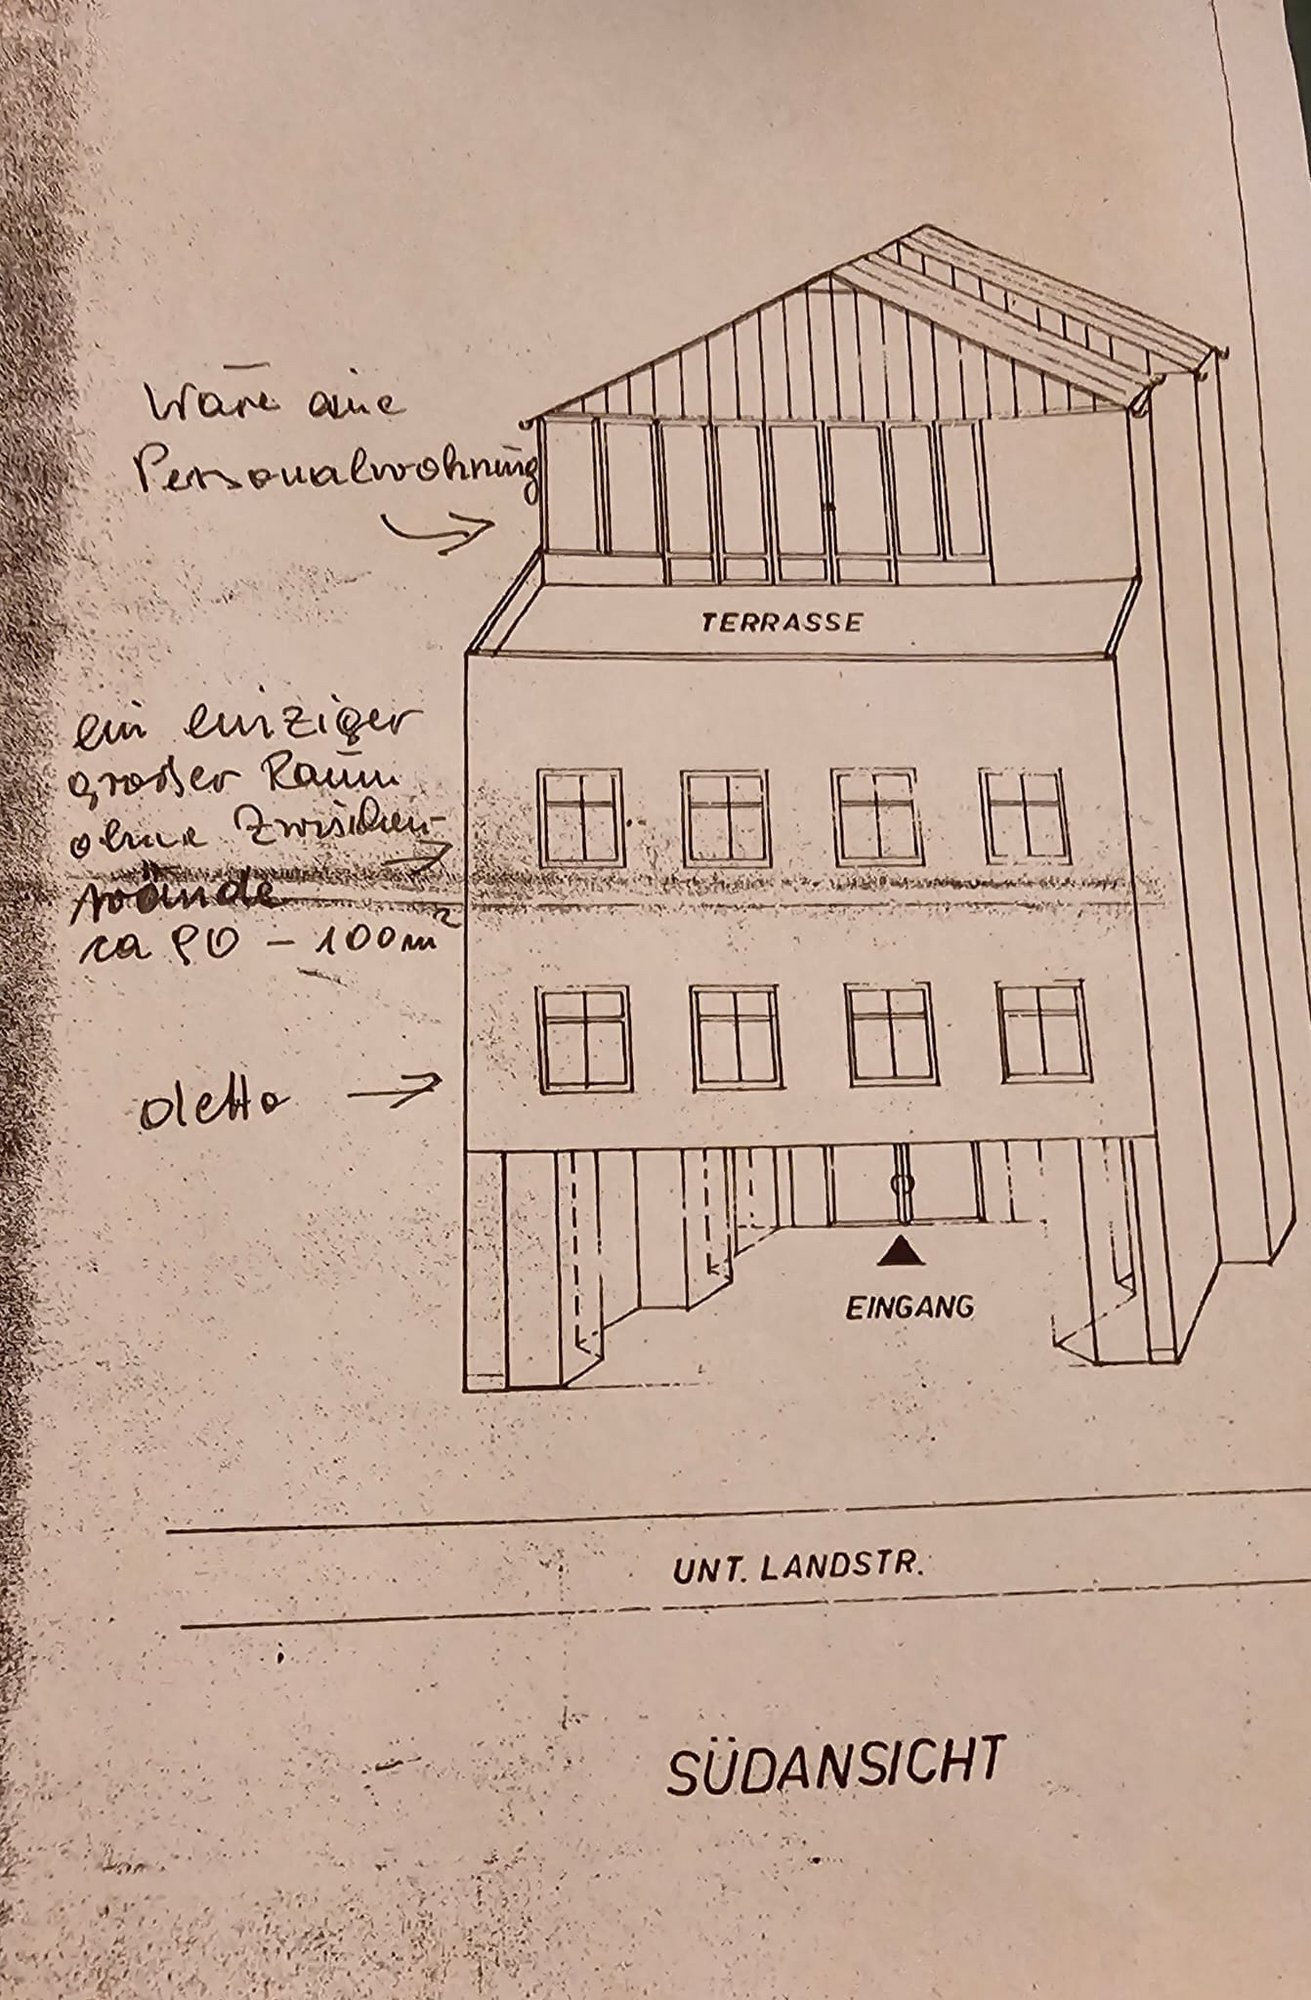 Wäre eine
Personalwohnung
TERRASSE
ein einziger
großer Raum
ohne Zwischen-
wände
ca 90 - 100 m²
detto
EINGANG
UNT. LANDSTR.
SÜDANSICHT